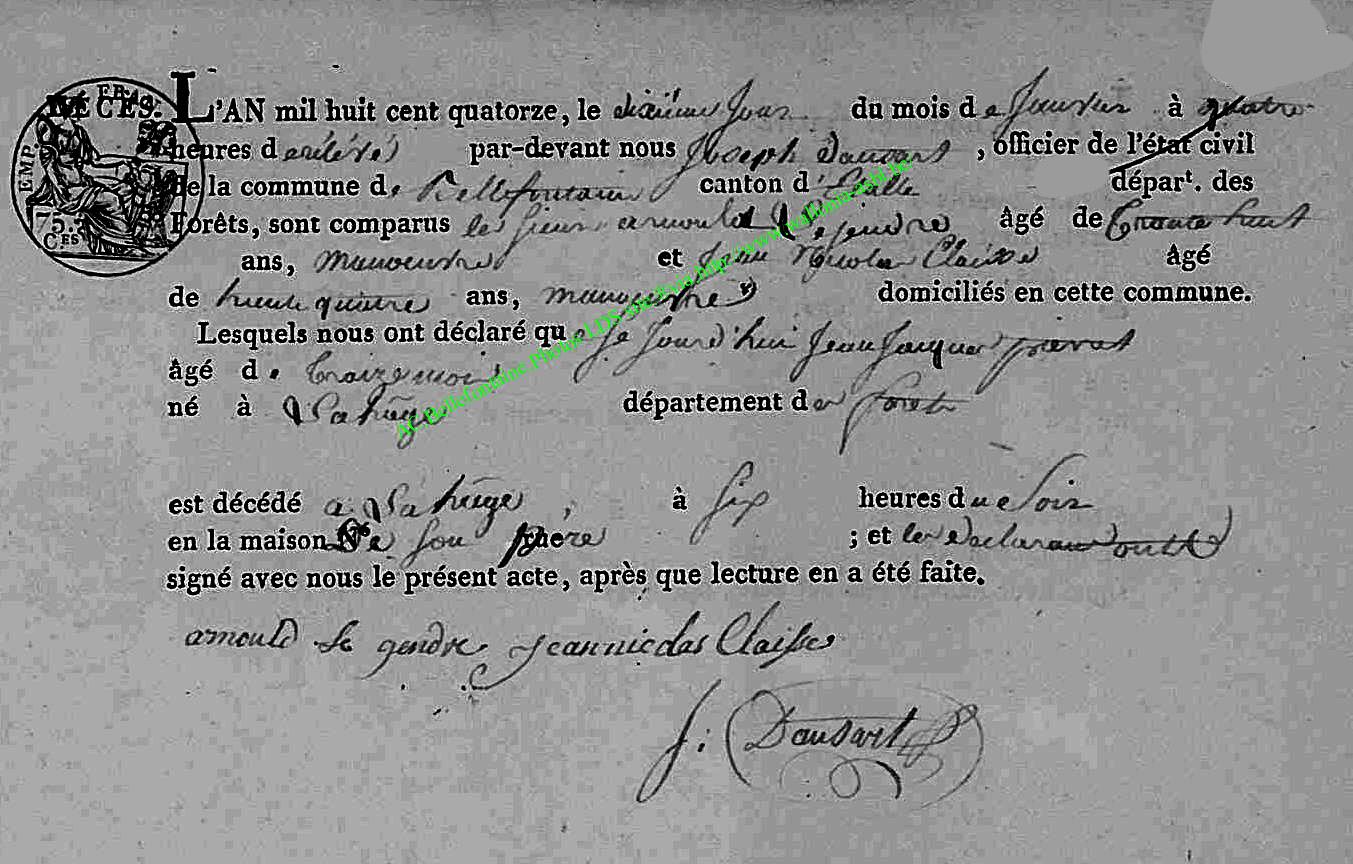 DÉCÈS.
EMP FRAN
75.c
CES
L'AN mil huit cent quatorze, le dixième jour du mois de janvier à quatre
heures d par-devant nous Joseph Dausart, officier de l'état civil
de la commune de Bellefontaine canton d'Etalle départ. des
Forêts, sont comparus les sieurs arnould Lejendre âgé de trente huit
ans, manoeuvre et Jean Nicolas Claisse âgé
de trente quatre ans, manoeuvre domiciliés en cette commune.
Lesquels nous ont déclaré que ce jourd'hui Jean Jacques
âgé de treize mois
né à Lahüge département des forets
est décédé a Lahüge, à six heures du soir
en la maison de son père ; et les declarant ont
signé avec nous le présent acte, après que lecture en a été faite.
arnould le gendre jean nicolas Claisse
J: Dausart
AC Bellefontaine Photos LDS http://www.wallonia-asbl.be/